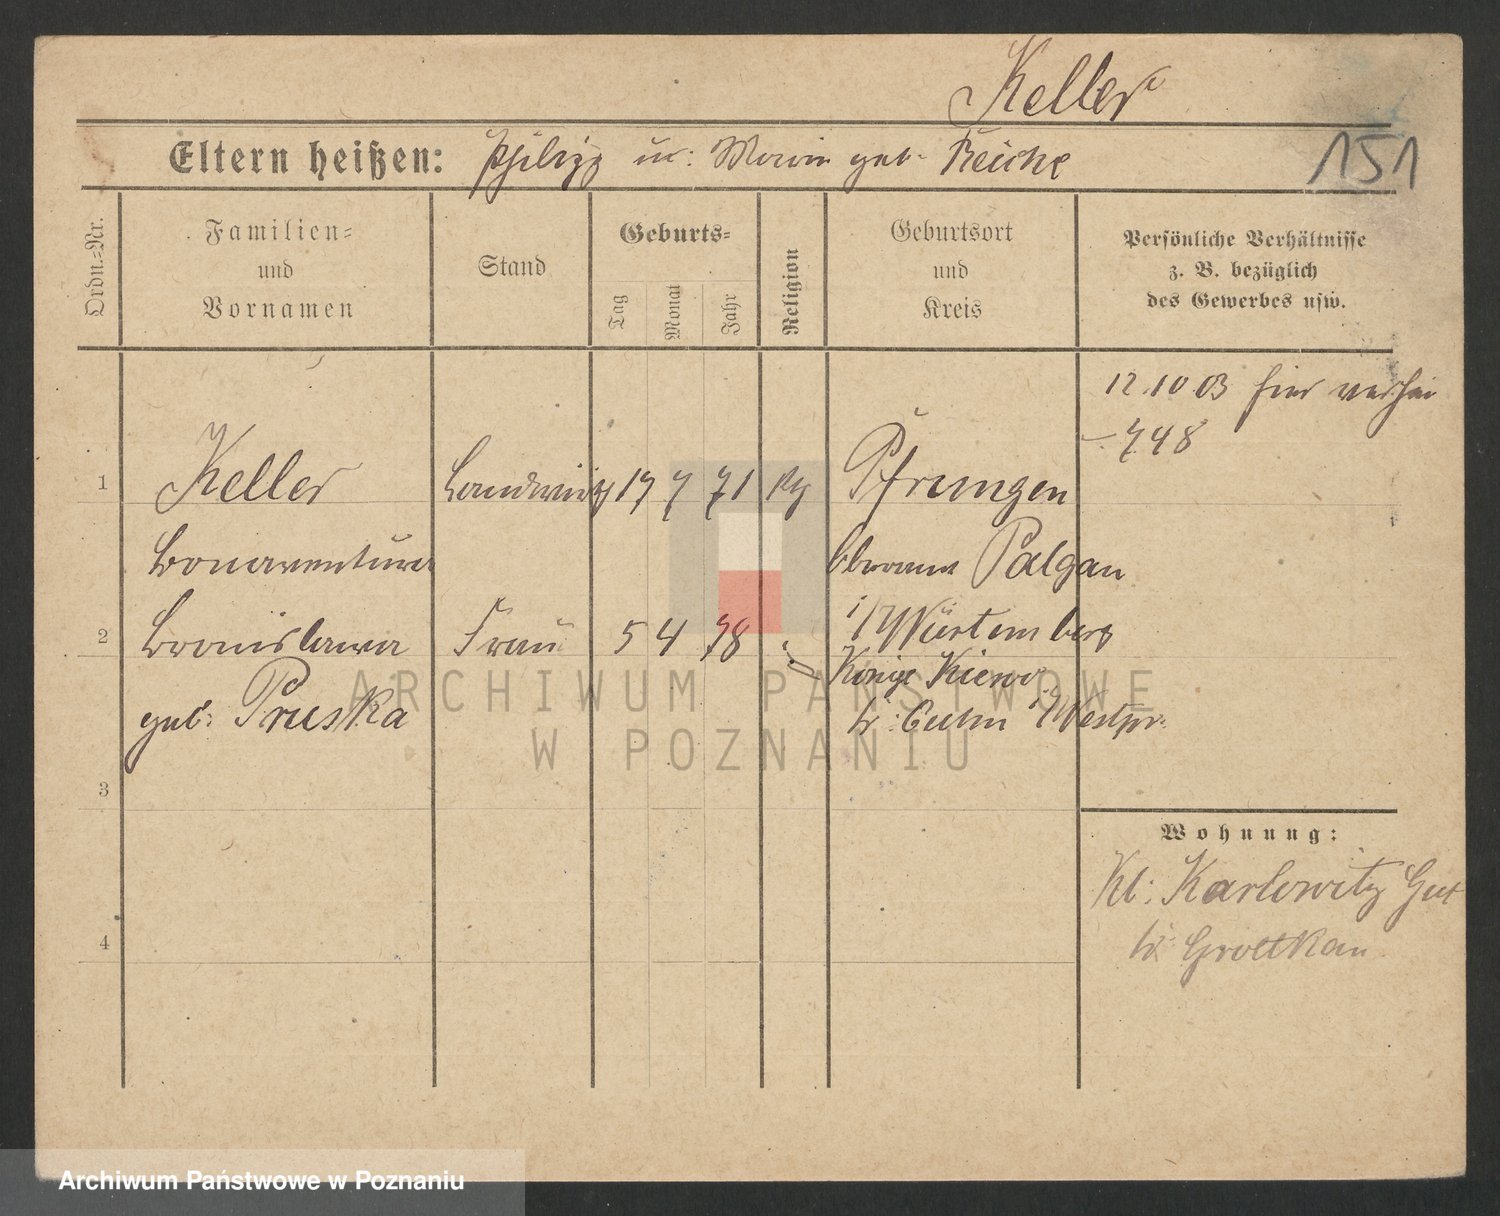 Keller
Eltern heißen: Philipp u: Maria geb. Reiche
151
Ordn.-Nr.
Familien-
und
Vornamen
Stand
Geburts-
Tag
Monat
Jahr
Religion
Geburtsort
und
Kreis
Persönliche Verhältnisse
z. B. bezüglich
des Gewerbes usw.
12.10.03 hier verhei
748
1 Keller Landwirth 17 7 71 Pfrungen
Bonaventura Oberamt Palgau
2 Bronislawa Frau 5 4 78 i/Würtemberg
geb: Pruska
Königl Kiewo
Kr: Culm i/Westpr.
3
Wohnung:
Kl: Karlowitz Gut
Kr Grottkau
4
ARCHIWUM PAŃSTWOWE
W POZNANIU
Archiwum Państwowe w Poznaniu